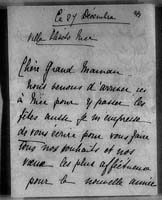 Ce 27 Décembre
Villa Nice
Chère Grand Maman
Nous venons d'arriver ici
à Nice pour y passer les
fêtes aussi je m'empresse
de vous écrire pour vous faire
tous nos souhaits et nos
vœux les plus affectueux
pour la nouvelle année